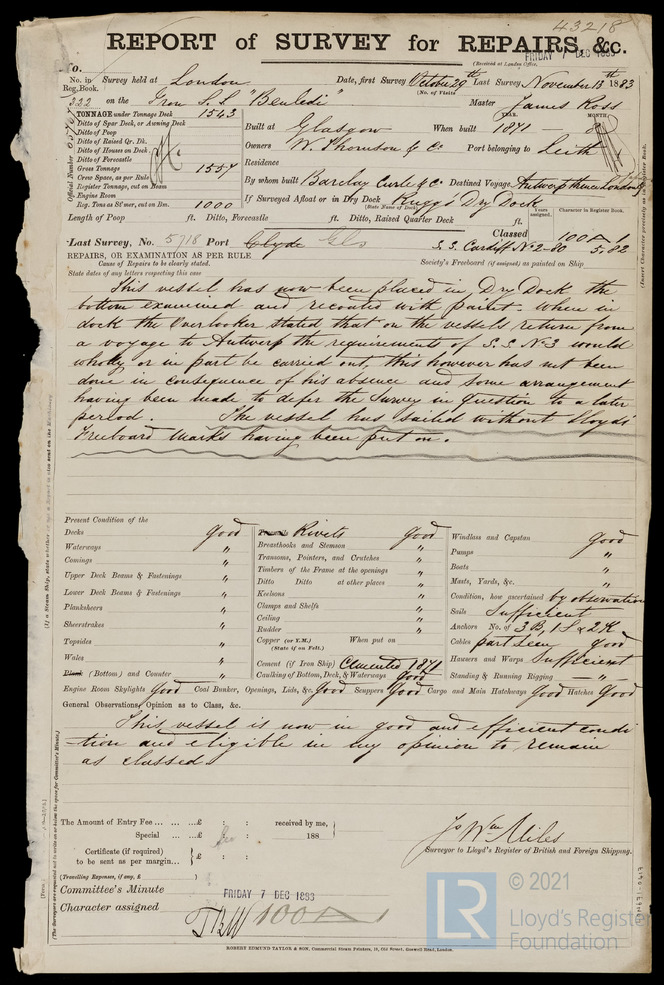 43218
REPORT of SURVEY for REPAIRS, &c.
(Received at London Office,
FRIDAY 7 DEC 1883
No.
No. in Reg. Book.
Survey held at London
Date, first Survey October 29th Last Survey, November 13th 1883
(No. of Visits)
322 on the Iron S.S. "Benledi"
Master James Ross
TONNAGE under Tonnage Deck 1543
Ditto of Spar Deck, or Awning Deck
Ditto of Poop
Ditto of Raised Qr. Dk.
Ditto of Houses on Deck
Ditto of Forecastle
Gross Tonnage 1557
Crew Space, as per Rule
Register Tonnage, cut on House
Engine Room
Reg. Tons as St'mer, cut on Bm. 1000
Official Number
YEAR. MONTH.
Built at Glasgow When built 1871 - 8
Owners W. Thomson & Co Port belonging to Leith
Residence
By whom built Barclay Curle & Co Destined Voyage Antwerp thence London
If Surveyed Afloat or in Dry Dock Rugg's Dry Dock
(State Name of Dock)
Years assigned. Character in Register Book.
Length of Poop ft. Ditto, Forecastle ft. Ditto, Raised Quarter Deck ft.
Classed 100 A 1
Last Survey, No. 5718 Port Clyde Gls
S.S. Cardiff No 2-80 5.82
REPAIRS, OR EXAMINATION AS PER RULE
Society's Freeboard (if assigned) as painted on Ship
Cause of Repairs to be clearly stated.
State dates of any letters respecting this case
This vessel has now been placed in Dry Dock the
bottom examined and recoated with paint. When in
dock the Overlooker stated that on the vessels return from
a voyage to Antwerp the requirements of S.S No 3 would
wholly or in part be carried out, this however has not been
done in consequence of his absence and some arrangement
having been made to defer the Survey in question to a later
period. The vessel has sailed without Lloyds'
Freeboard Marks having been put on.
Present Condition of the
Decks Good
Waterways "
Comings "
Upper Deck Beams & Fastenings "
Lower Deck Beams & Fastenings "
Planksheers "
Sheerstrakes "
Topsides "
Wales "
Plank (Bottom) and Counter "
Rivets Good
Breasthooks and Stemson "
Transoms, Pointers, and Crutches "
Timbers of the Frame at the openings "
Ditto Ditto at other places "
Keelsons "
Clamps and Shelfs "
Ceiling "
Rudder "
Copper (or Y.M.) When put on
(State if on Felt.)
Cement (if Iron Ship) Cemented 1871
Caulking of Bottom, Deck, & Waterways Good
Windlass and Capstan Good
Pumps "
Boats "
Masts, Yards, &c. "
Condition, how ascertained by observation
Sails Sufficient
Anchors No. of 3 B, 1 S & 2 K
Cables part seen good
Hawsers and Warps Sufficient
Standing & Running Rigging — " —
Engine Room Skylights Good Coal Bunker, Openings, Lids, &c. Good Scuppers Good Cargo and Main Hatchways Good Hatches Good
General Observations, Opinion as to Class, &c.
This vessel is now in good and efficient condi
tion and eligible in my opinion to remain
as classed.
The Amount of Entry Fee ... ... ...£ : : received by me,
Special ... ...£ : : 188
Certificate (if required) to be sent as per margin... }£ : :
(Travelling Expenses, if any, £ )
Jo Wm Miles
Surveyor to Lloyd's Register of British and Foreign Shipping.
Committee's Minute FRIDAY 7 DEC 1883
Character assigned 100 A 1
ROBERT EDMUND TAYLOR & SON, Commercial Steam Printers, 19, Old Street, Goswell Road, London.
LR
© 2021
Lloyd's Register
Foundation